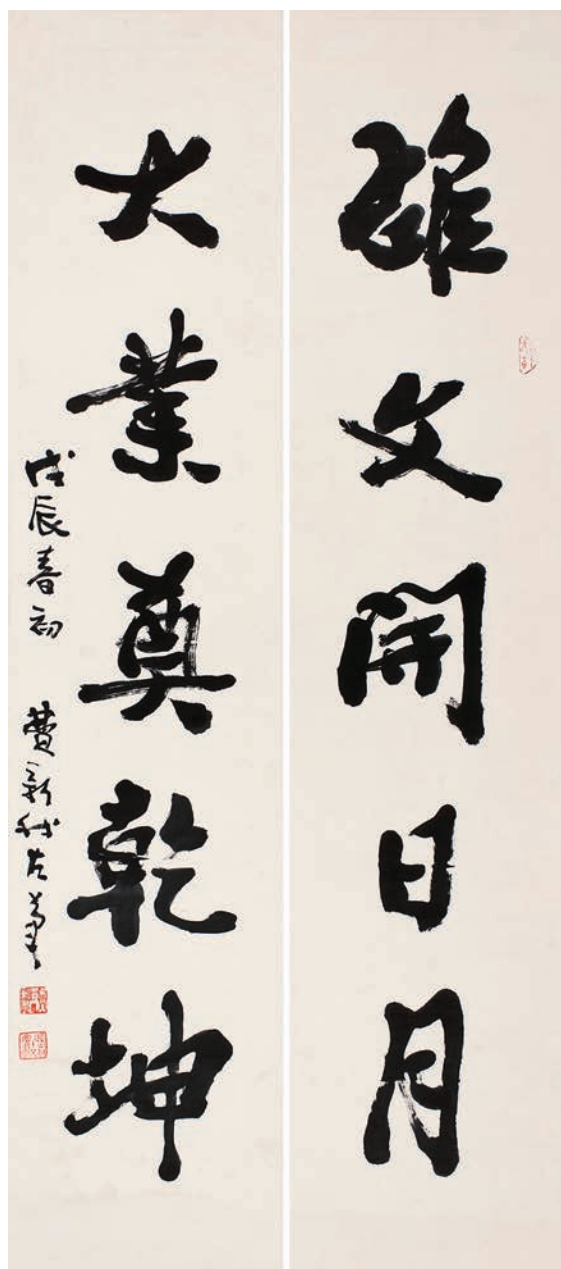 雄文開日月
大業奠乾坤
戊辰春初 費新我左筆